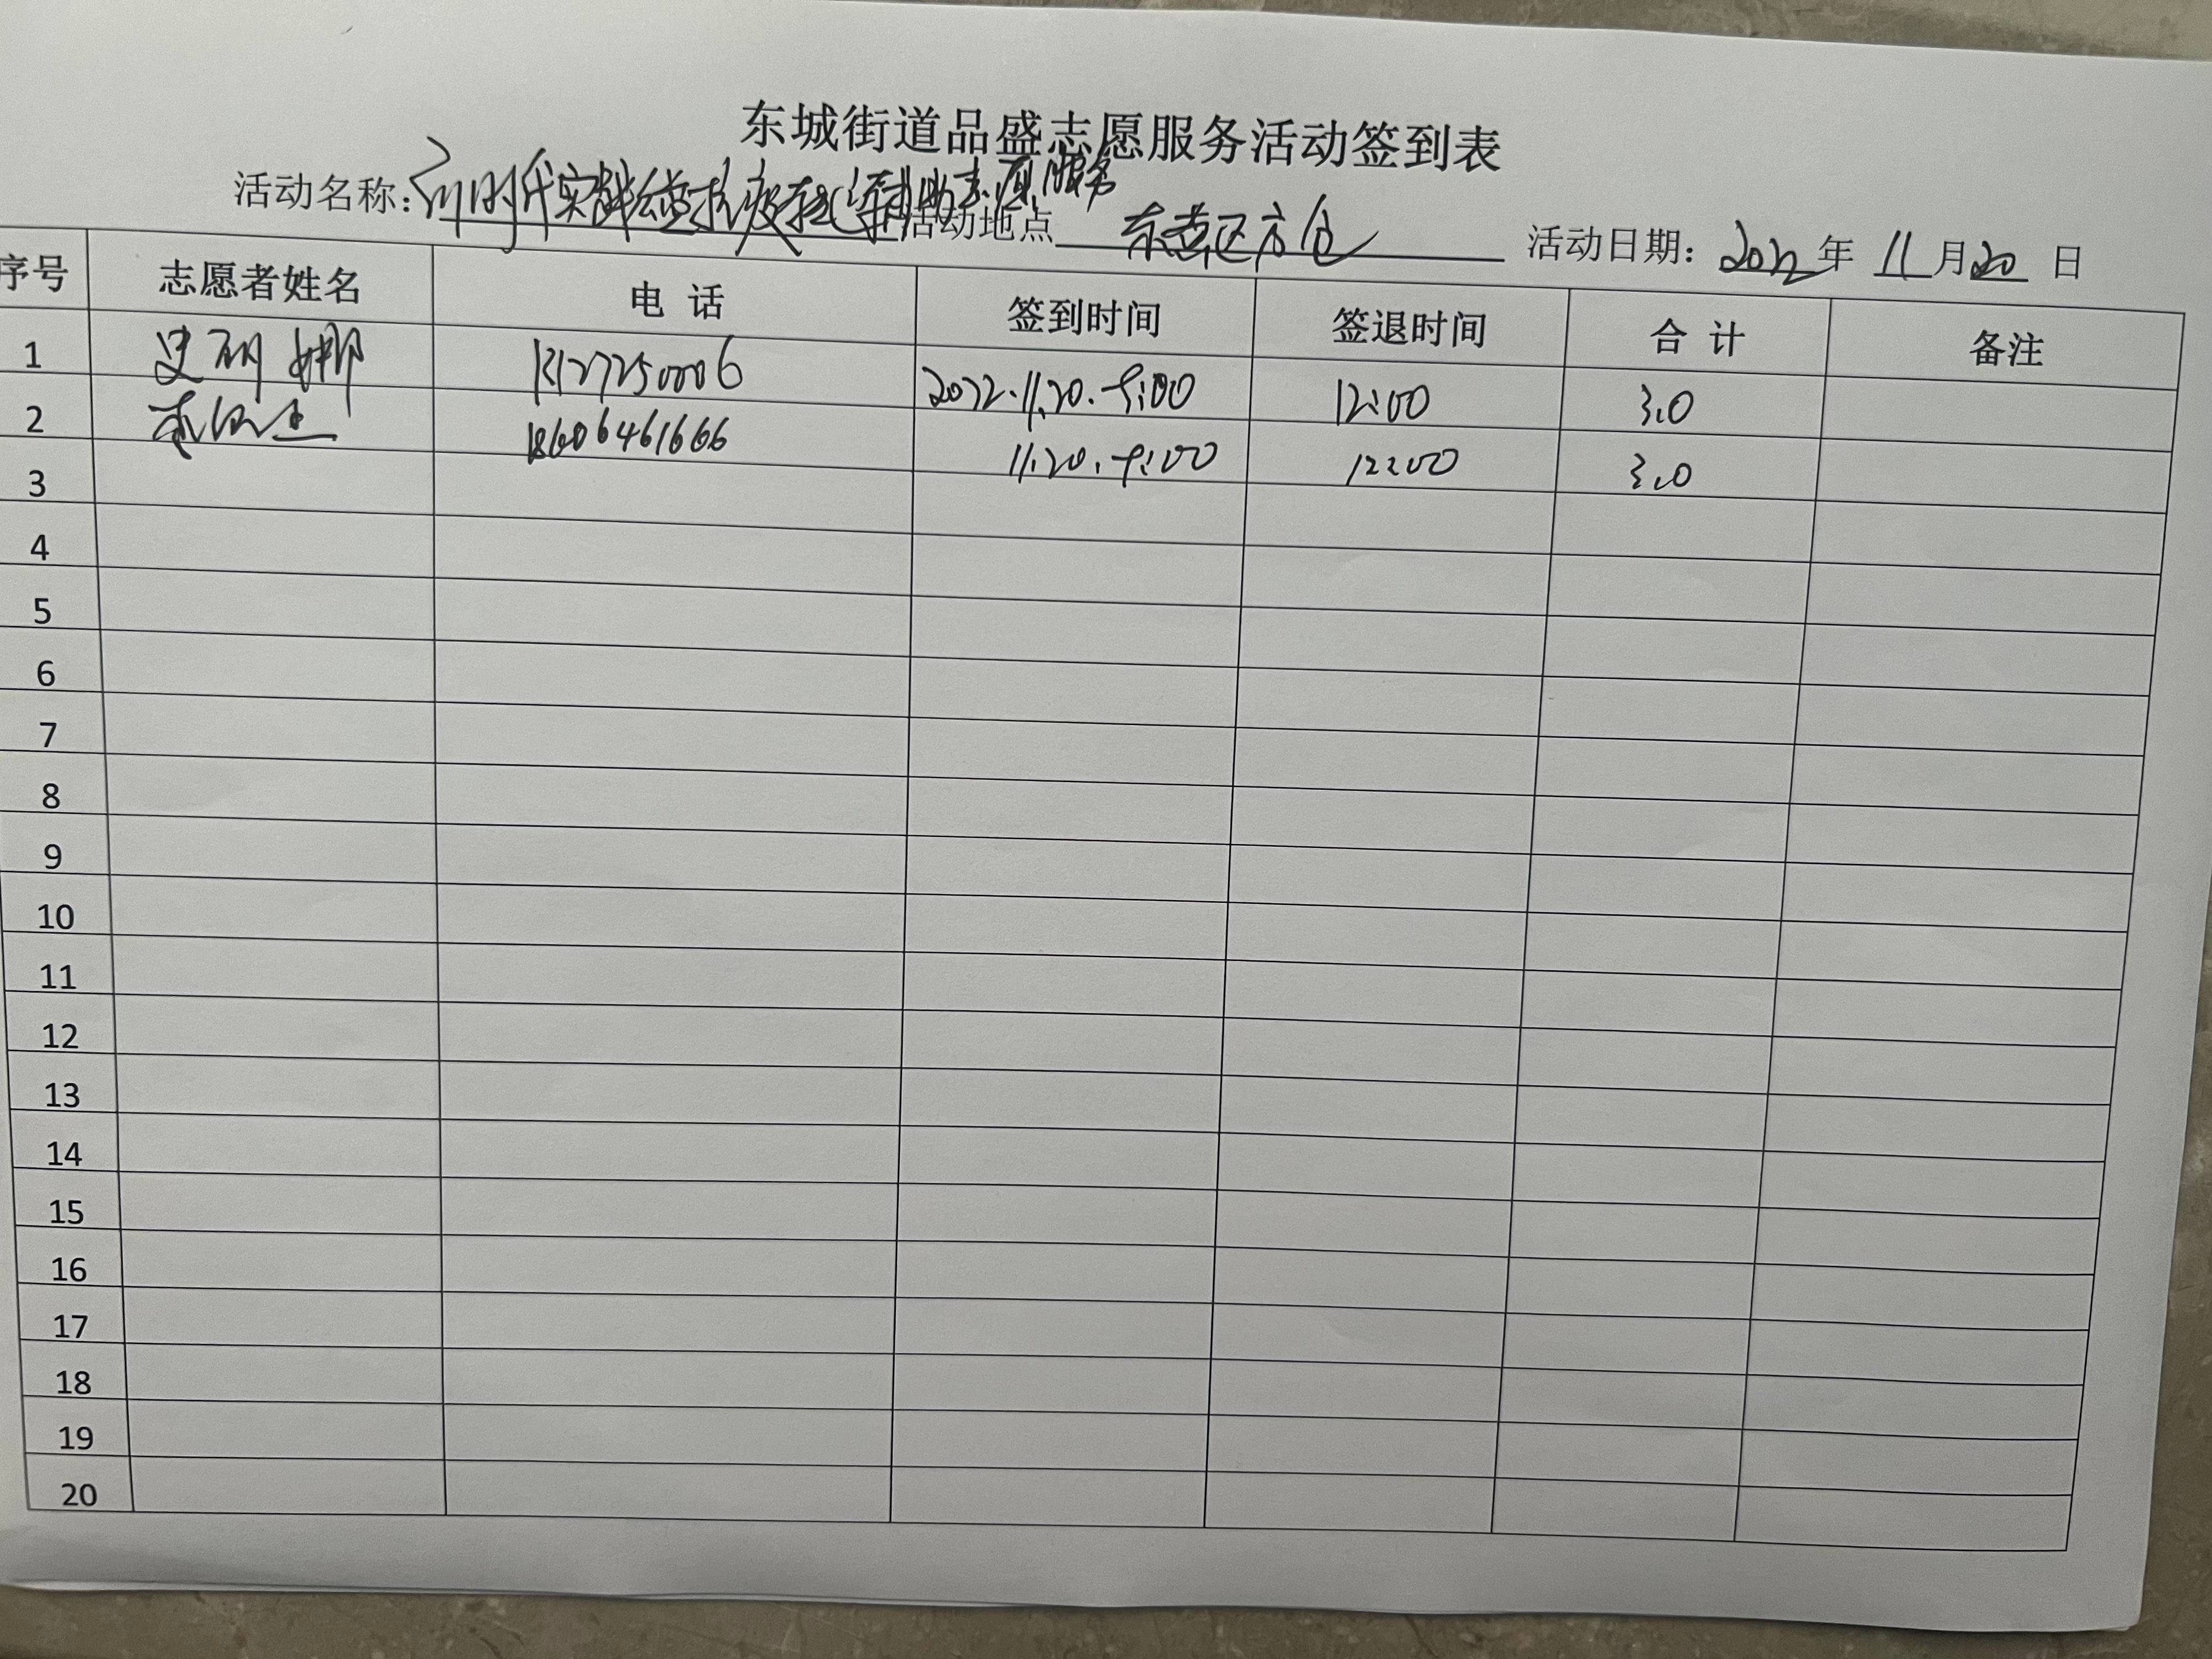 东城街道品盛志愿服务活动签到表
活动名称: 时代实践 抗疫 志愿服务 活动地点 东营区方仓 活动日期: 2022年 11月20日
序号 志愿者姓名 电 话 签到时间 签退时间 合 计 备注
1 史丽娜 2022.11.20. 9:00 12:00 3.0
2 18606461666 11.20. 9:00 12:00 3.0
3
4
5
6
7
8
9
10
11
12
13
14
15
16
17
18
19
20